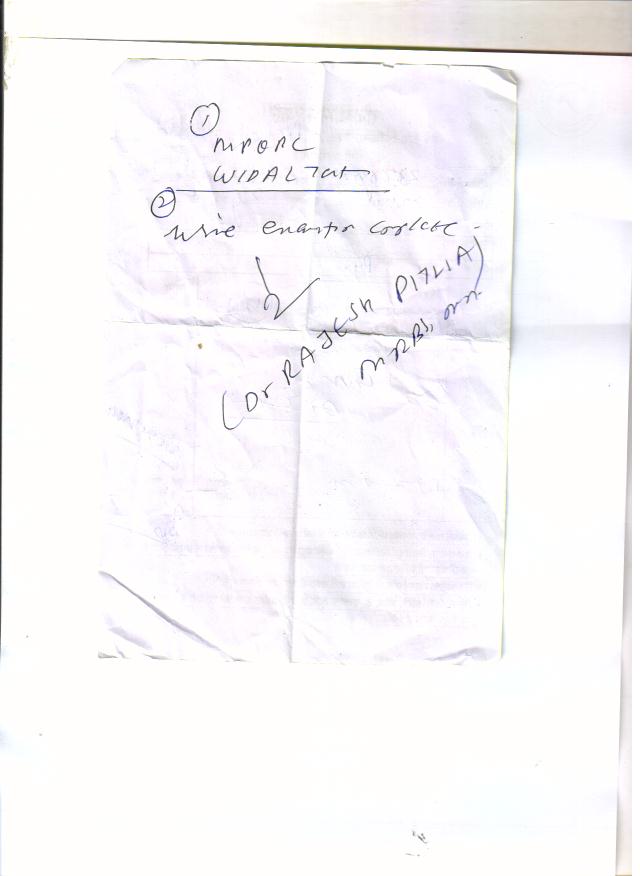 ①
MPQPC
WIDAL Test
②
Urine Examption Complete
(Dr RAJESH PITLIA)
MBBS,